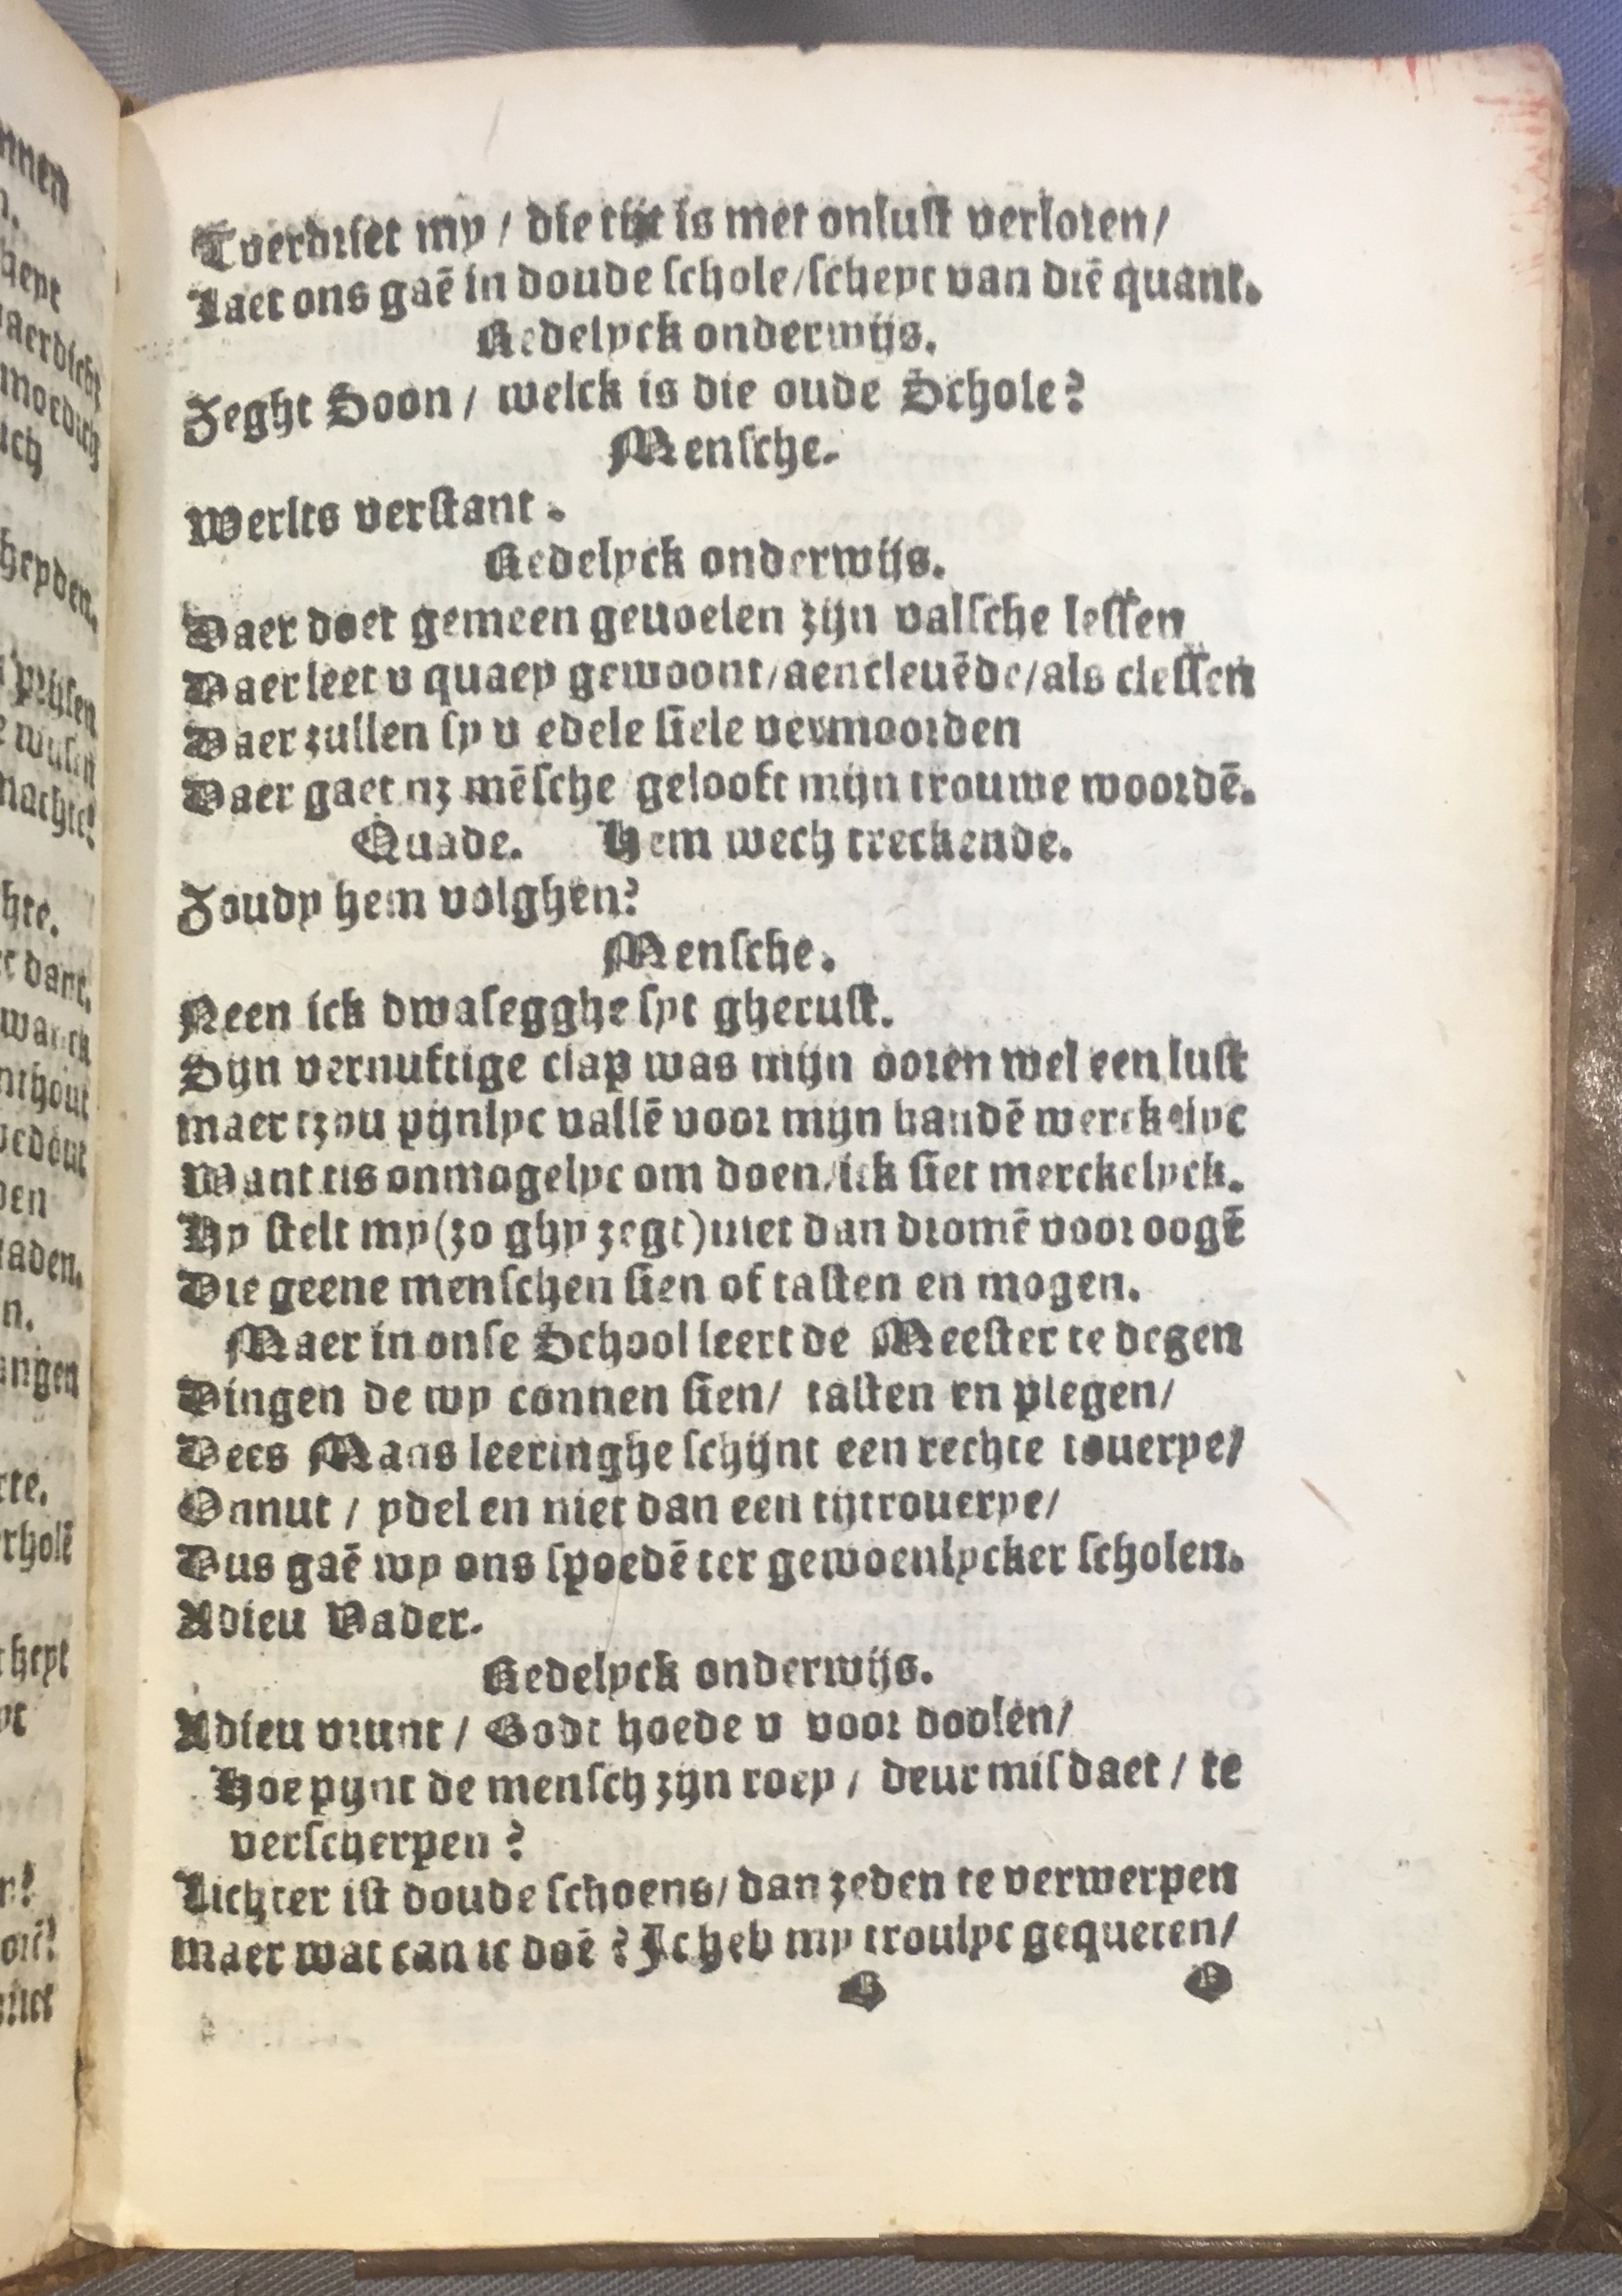 Tverdriet my / die tijt is met onlust verloren /
Laet ons gaē in doude schole / scheyt van diē quant.
Redelyck onderwijs.
Zeght Soon / welck is die oude Schole?
Mensche.
Werlts verstant.
Redelyck onderwijs.
Daer doet gemeen gevoelen zijn valsche lessen
Daer leet v quaey gewoont / aencleuēde / als clessen
Daer zullen sy v edele siele vermoorden
Daer gaet nz mēsche gelooft mijn trouwe woordē.
Quade. Hem wech treckende.
Zoudy hem volghen?
Mensche.
Neen ick dwasegghe syt gherust.
Sijn vernuftige clap was mijn ooren wel een lust
maer tzou pijnlyc vallē voor mijn handē werckelyc
Want tis onmogelyc om doen / ick siet merckelyck.
Hy stelt my (zo ghy zegt) niet dan dromē voor oogē
Die geene menschen sien of tasten en mogen.
Maer in onse School leert de Meester te degen
Dingen de wy connen sien / tasten en plegen /
Dees Mans leeringhe schijnt een rechte touerye /
Onnut / ydel en niet dan een tijtrouerye /
Dus gaē wy ons spoedē ter gewoenlycker scholen.
Adieu Vader.
Redelyck onderwijs.
Adieu vrunt / Godt hoede v voor doolen /
Hoe pijnt de mensch zijn roey / deur misdaet / te
verscherpen?
Lichter ist doude schoens / dan zeden te verwerpen
maer wat can ic doē? Ic heb my troulyc gequeten /